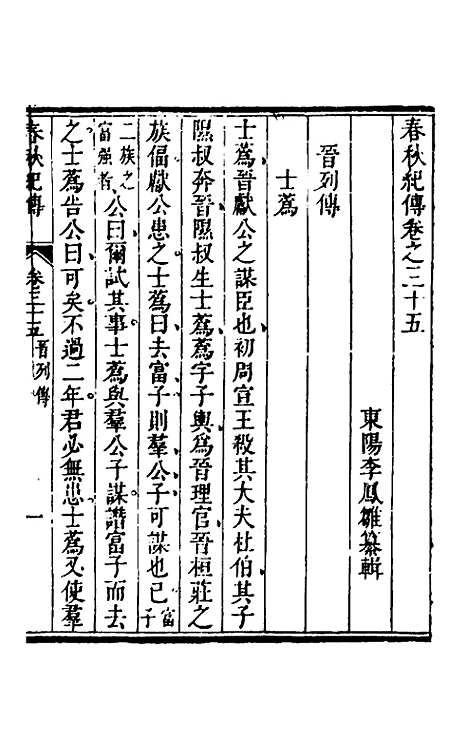 春秋紀傳卷之三十五
東陽李鳳雛纂輯
晉列傳
士蔿
士蔿晉獻公之謀臣也初周宣王殺其大夫杜伯其子
隰叔奔晉隰叔生士蔿蔿字子輿爲晉理官晉桓莊之
族偪獻公患之士蔿曰去富子則羣公子可謀也已富子
二族之富强者公曰爾試其事士蔿與羣公子謀譖富子而去
之士蔿告公曰可矣不過二年君必無患士蔿又使羣
春秋紀傳 卷三十五 晉列傳 一